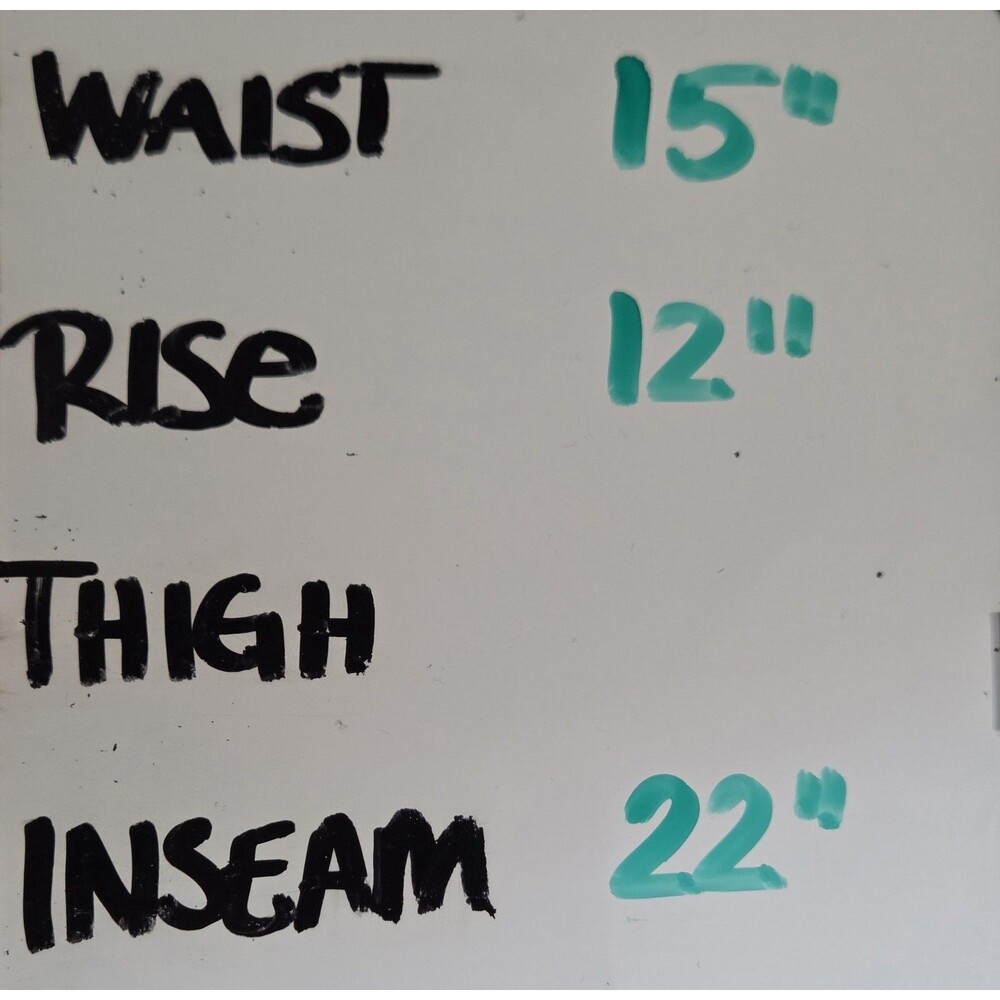 WAIST 15"
RISE 12"
THIGH
INSEAM 22"